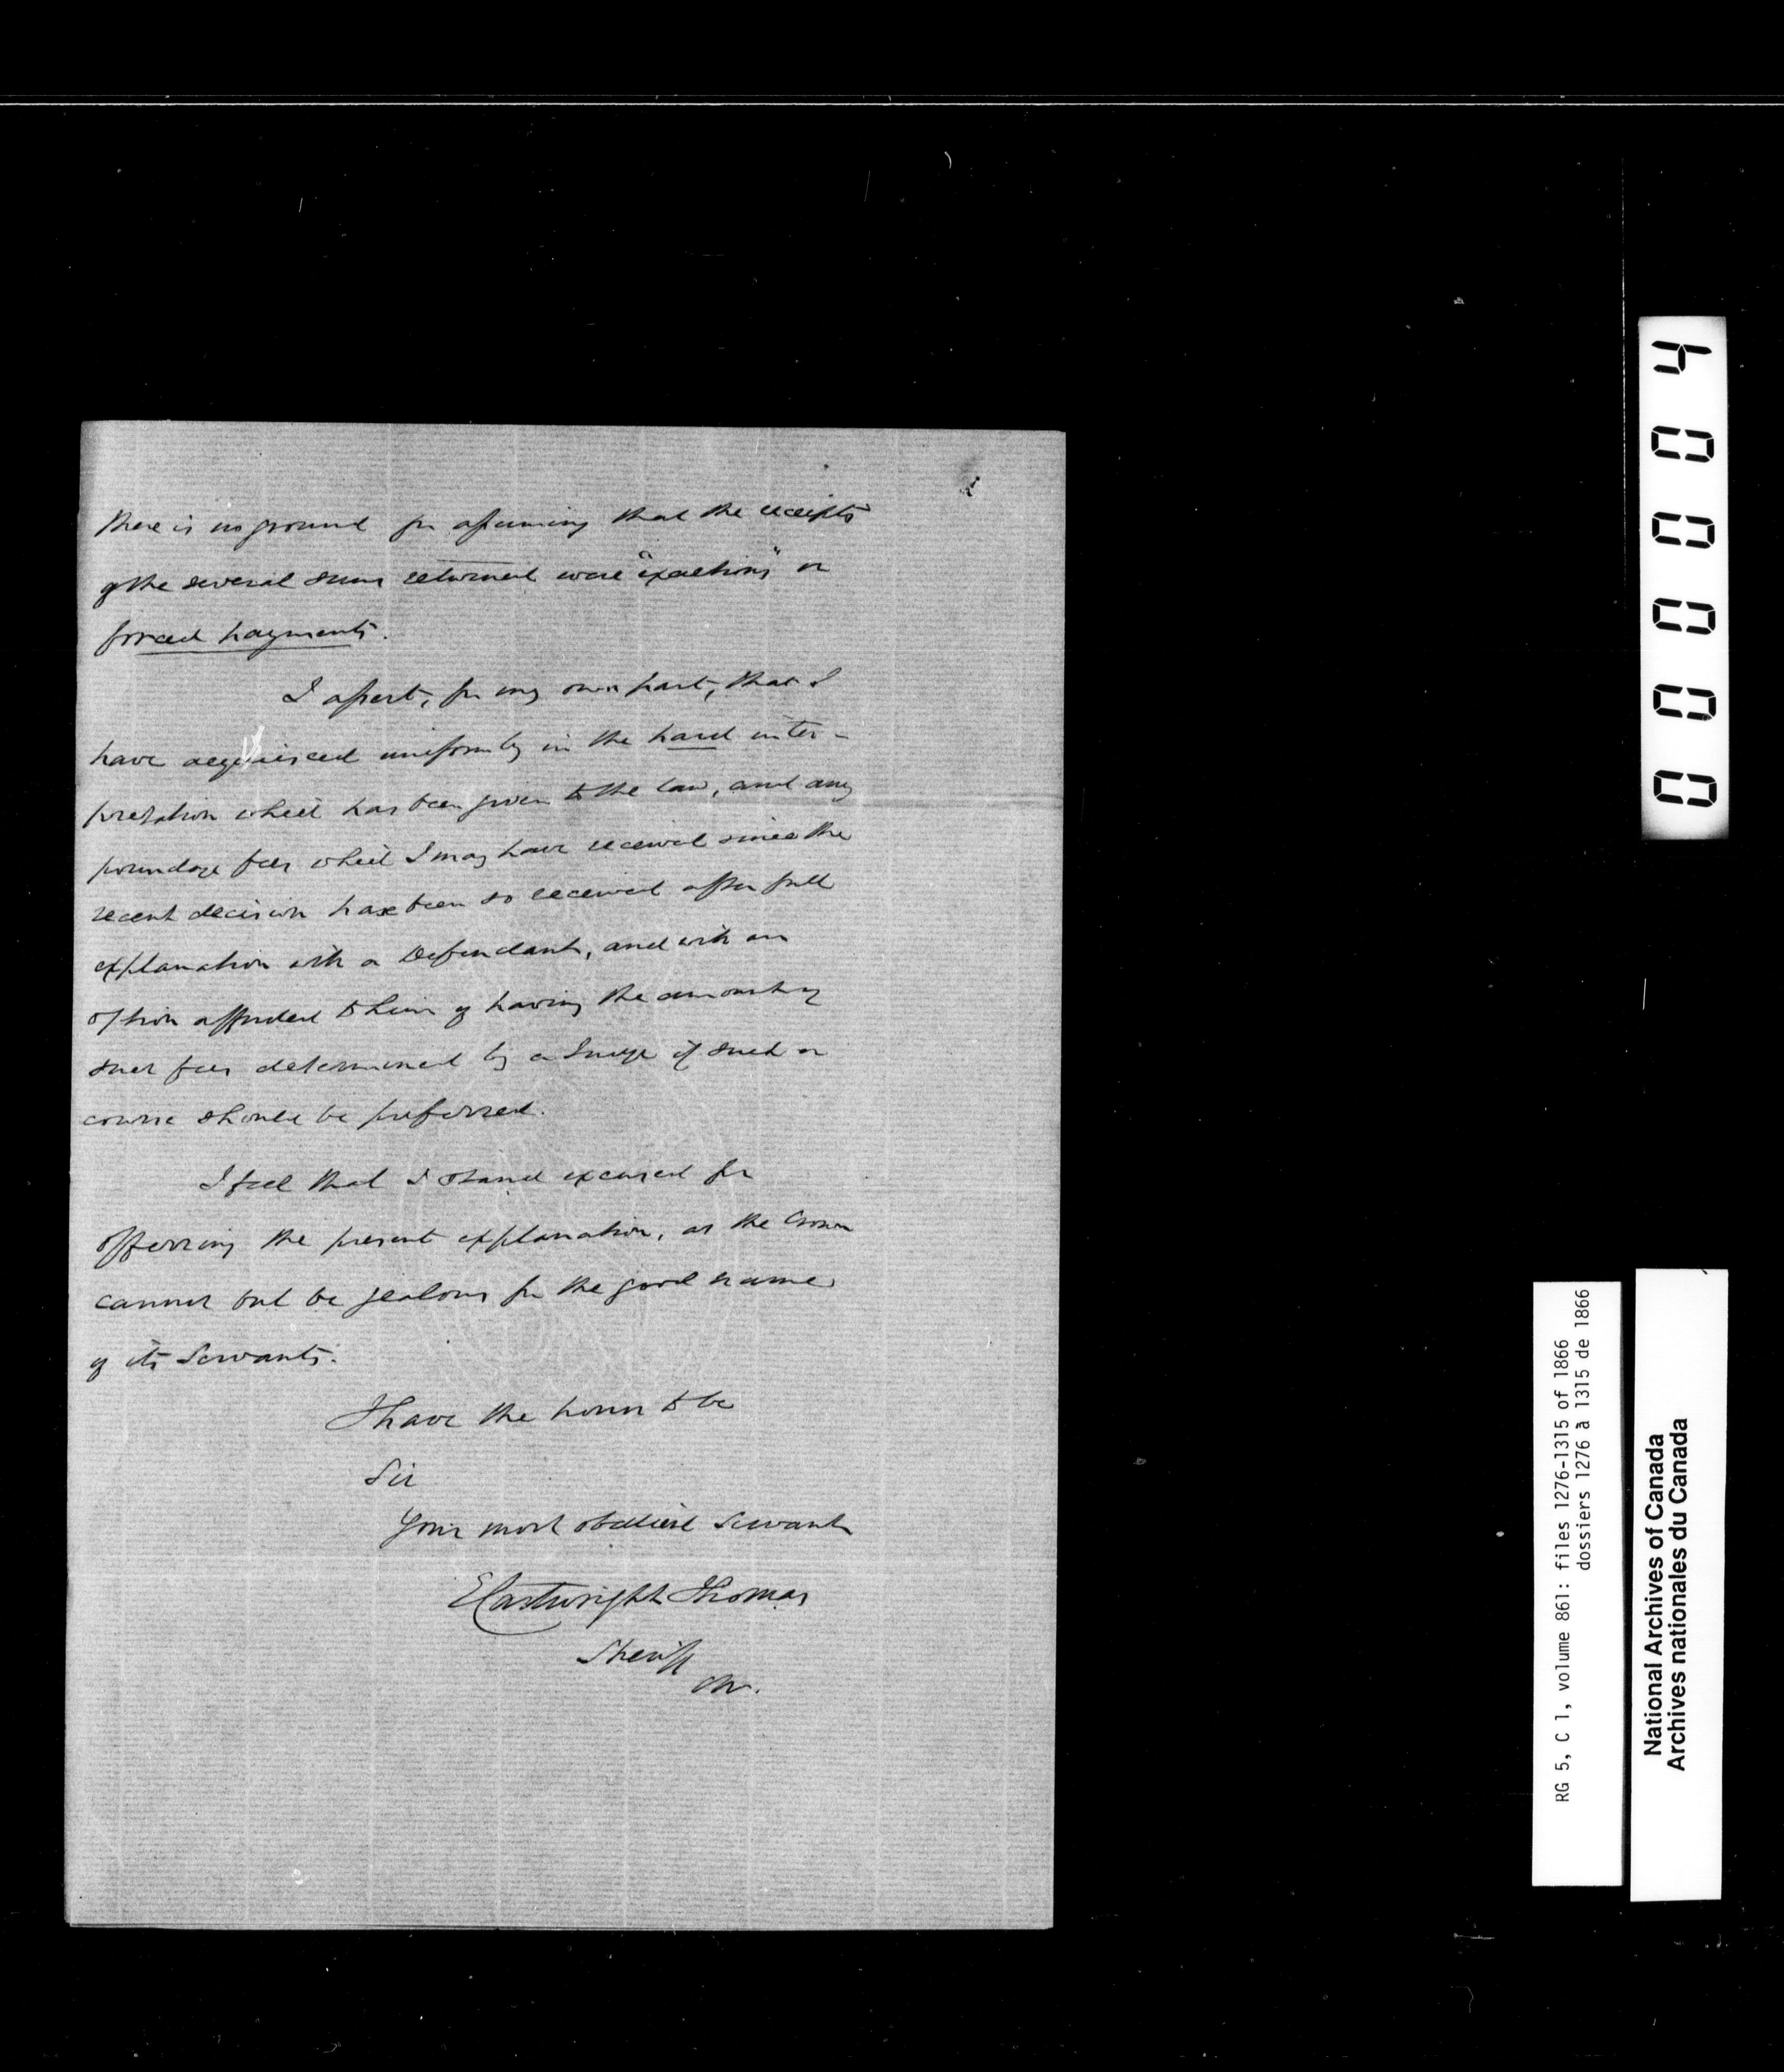 there is no ground for assuming that the receipts
of the several sums returned were "exactions" or
forced payments.
I assert, for my own part, that I
have acquiesced uniformly in the hard inter-
pretation which has been given to the law, and any
poundage fees which I may have received since the
recent decision have been so received after full
explanation with a Defendant, and with an
option afforded to him of having the amount of
such fees determined by a Judge if such a
course should be preferred.
I feel that I stand excused for
offering the present explanation, as the Crown
cannot but be jealous for the good name
of its Servants.
I have the honor to be
Sir
Your most obedient Servant
E Cartwright Thomas
Sheriff
00004
RG 5, C 1, volume 861: files 1276-1315 of 1866
dossiers 1276 à 1315 de 1866
National Archives of Canada
Archives nationales du Canada